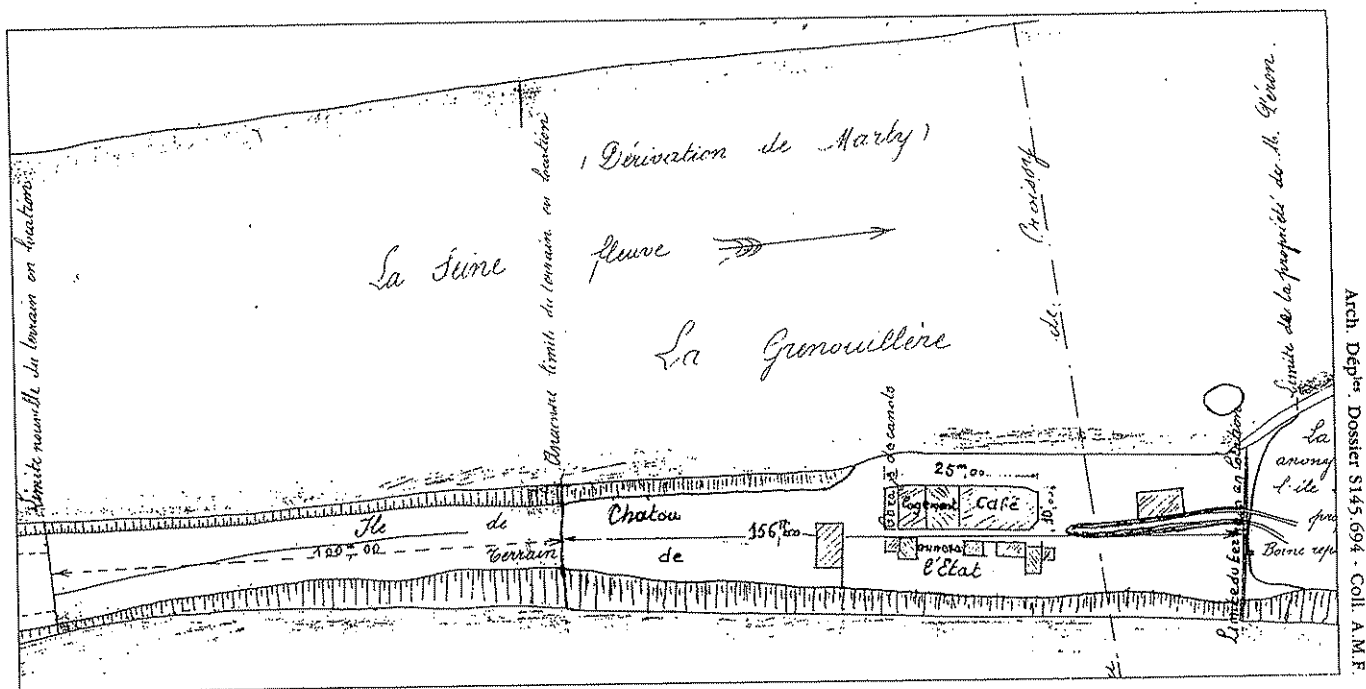 Limite nouvelle du terrain en location
Ancienne limite du terrain en location
(Dérivation de Marly)
La Seine fleuve
La Grenouillère
de Croissy
Limite de la propriété de M.
de canots
25m,00
Logement
Café
10m,00
Ile de Chatou
100m,00
Terrain de l'Etat
156m,00
Limite du terrain en location
La
anony
l'île
pro
Borne rep
Arch. Déples. Dossier S145.694 - Coll. A.M.F.